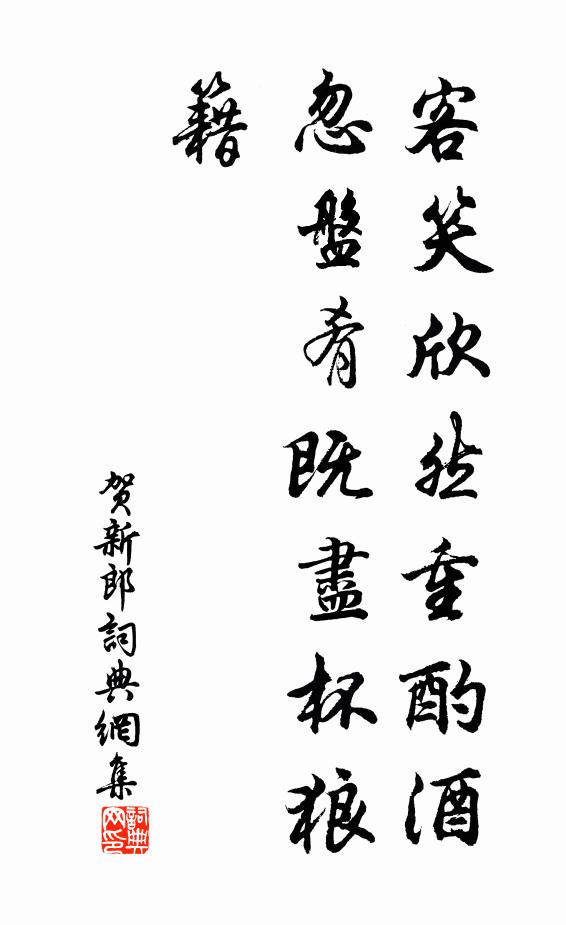 客笑欣然重酌酒
忽盤肴既盡杯狼
籍
贺新郎詞典網集
詞典网印